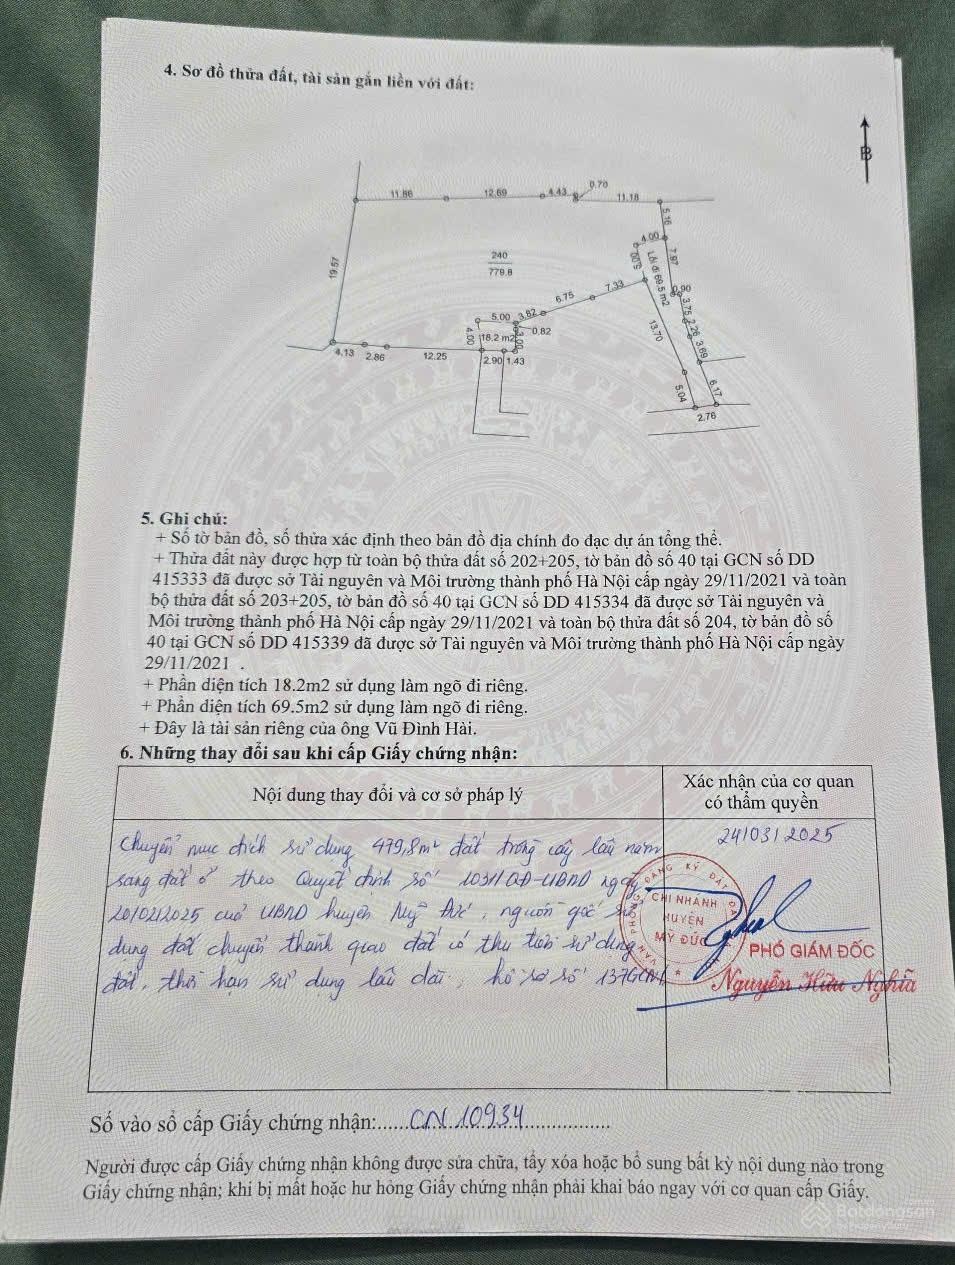 4. Sơ đồ thửa đất, tài sản gắn liền với đất:
B
11.86 12.69 4.43 0.70 11.18
5.16
4.00
7.97
5.00
Lối đi 69.5 m2
240
779.8
19.57
0.90
3.75
2.26
3.69
6.75 7.33
5.00 3.82
0.82
4.00
18.2 m2
3.00
13.70
4.13 2.86 12.25 2.90 1.43
5.04
6.17
2.76
5. Ghi chú:
+ Số tờ bản đồ, số thửa xác định theo bản đồ địa chính đo đạc dự án tổng thể.
+ Thửa đất này được hợp từ toàn bộ thửa đất số 202+205, tờ bản đồ số 40 tại GCN số DD
415333 đã được sở Tài nguyên và Môi trường thành phố Hà Nội cấp ngày 29/11/2021 và toàn
bộ thửa đất số 203+205, tờ bản đồ số 40 tại GCN số DD 415334 đã được sở Tài nguyên và
Môi trường thành phố Hà Nội cấp ngày 29/11/2021 và toàn bộ thửa đất số 204, tờ bản đồ số
40 tại GCN số DD 415339 đã được sở Tài nguyên và Môi trường thành phố Hà Nội cấp ngày
29/11/2021 .
+ Phần diện tích 18.2m2 sử dụng làm ngõ đi riêng.
+ Phần diện tích 69.5m2 sử dụng làm ngõ đi riêng.
+ Đây là tài sản riêng của ông Vũ Đình Hài.
6. Những thay đổi sau khi cấp Giấy chứng nhận:
Nội dung thay đổi và cơ sở pháp lý
Xác nhận của cơ quan
có thẩm quyền
Chuyển mục đích sử dụng 479,8m² đất trồng cây lâu năm
sang đất ở theo Quyết định số 1031/QĐ-UBND ngày
20/02/2025 của UBND huyện Mỹ Đức, nguồn gốc sử
dụng đất chuyển thành giao đất có thu tiền sử dụng
đất, thời hạn sử dụng lâu dài, hồ sơ số 137
24/03/2025
VĂN PHÒNG ĐĂNG KÝ ĐẤT ĐAI
CHI NHÁNH
HUYỆN
MỸ ĐỨC
PHÓ GIÁM ĐỐC
Nguyễn Hữu Nghĩa
Số vào sổ cấp Giấy chứng nhận:.....CN 10934
Người được cấp Giấy chứng nhận không được sửa chữa, tẩy xóa hoặc bổ sung bất kỳ nội dung nào trong
Giấy chứng nhận; khi bị mất hoặc hư hỏng Giấy chứng nhận phải khai báo ngay với cơ quan cấp Giấy.
Batdongsan
by PropertyGuru